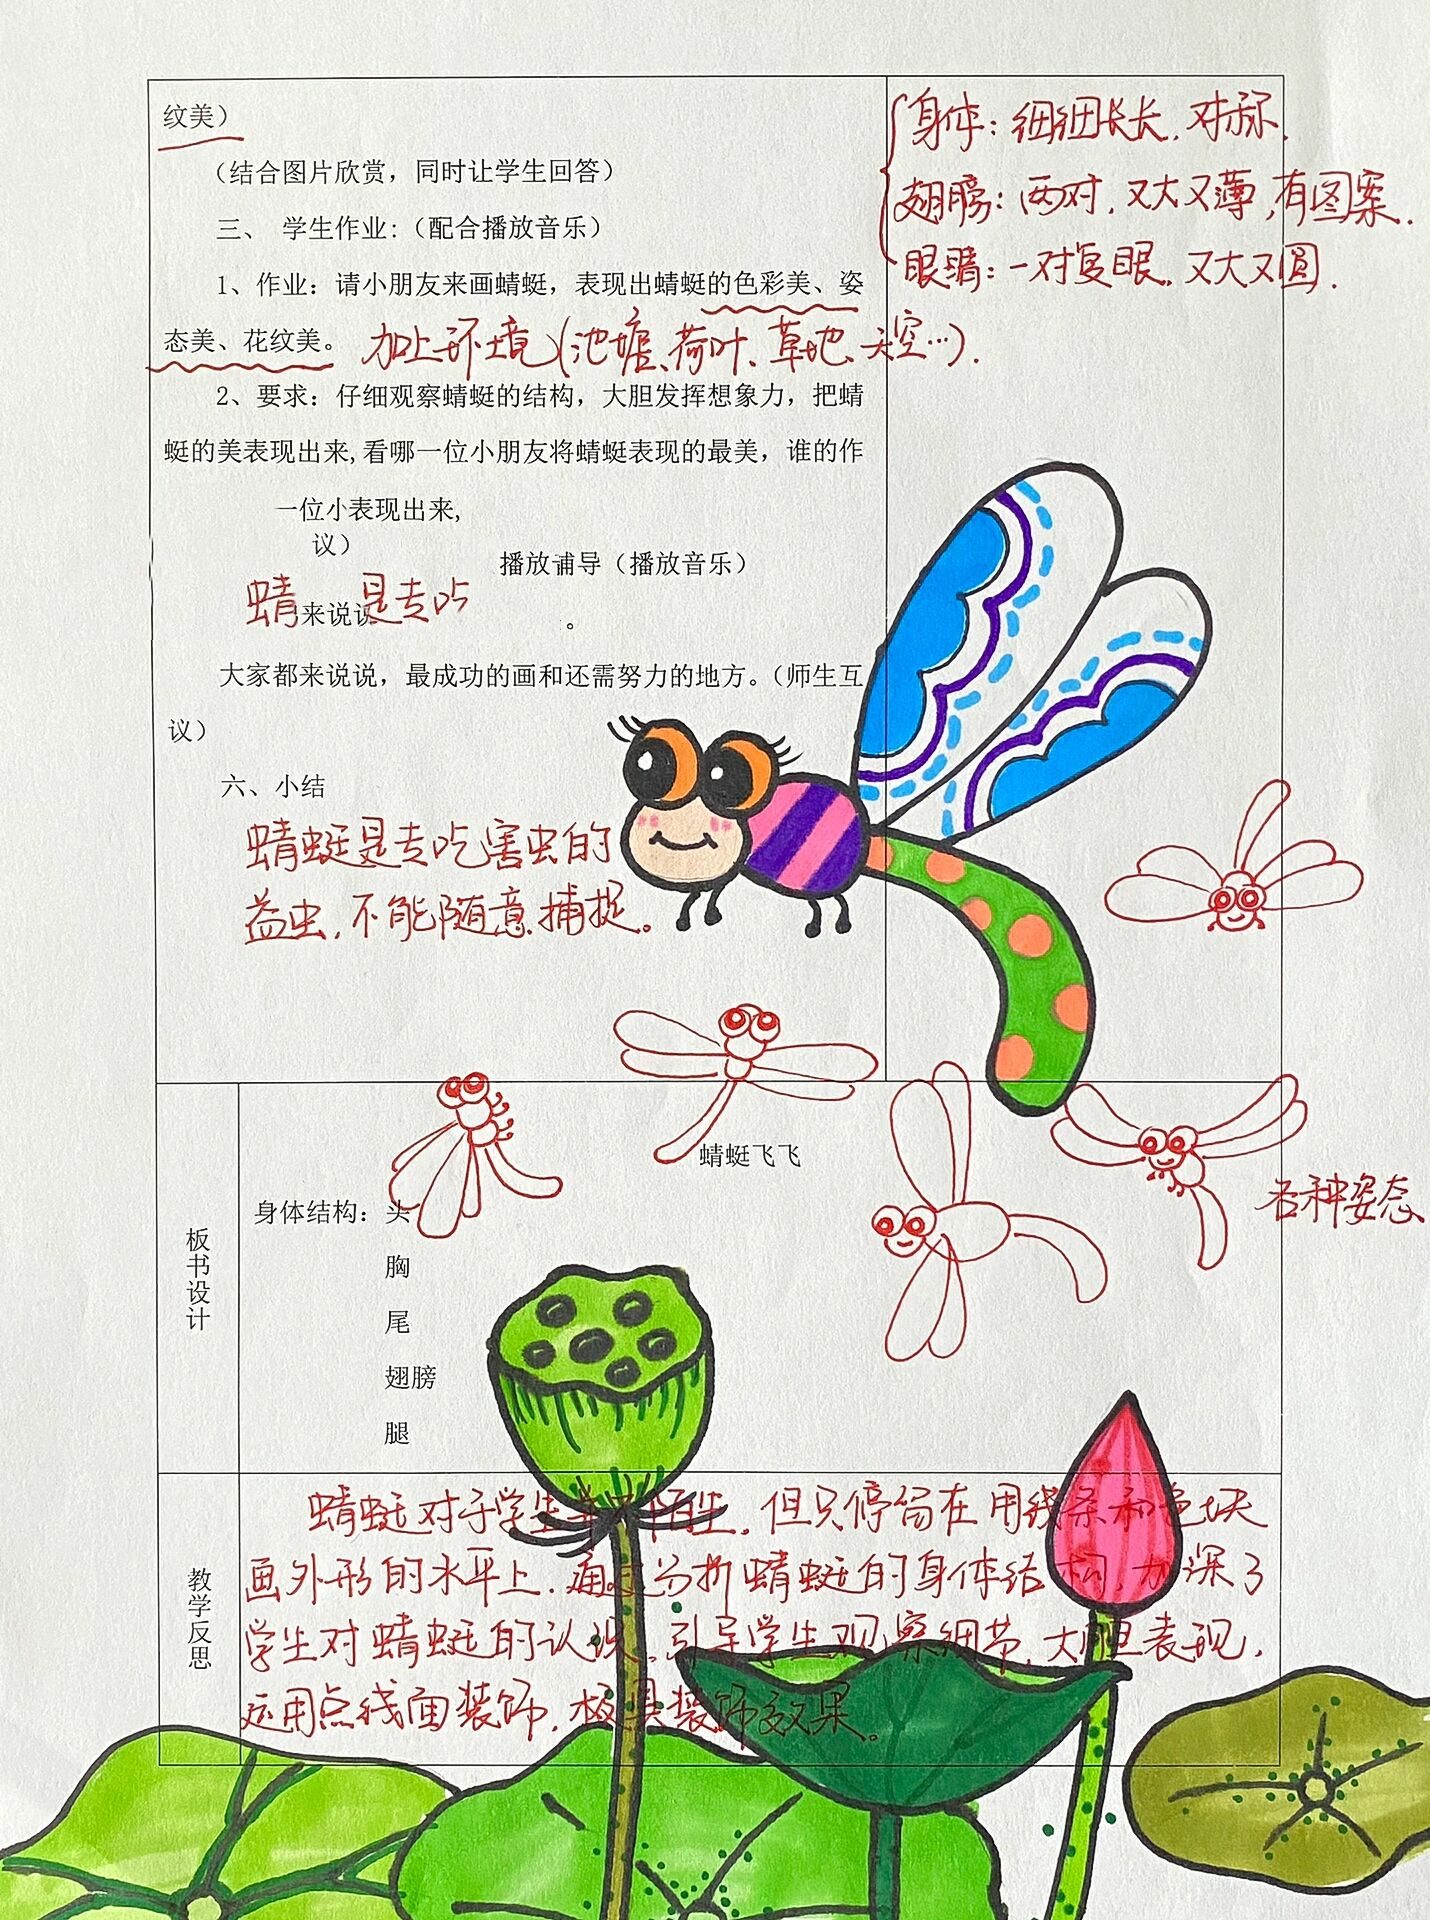 纹美）
（结合图片欣赏，同时让学生回答）
三、 学生作业：（配合播放音乐）
1、作业：请小朋友来画蜻蜓，表现出蜻蜓的色彩美、姿
态美、花纹美。 加上环境（池塘、荷叶、草地、天空…）.
2、要求：仔细观察蜻蜓的结构，大胆发挥想象力，把蜻
蜓的美表现出来,看哪一位小朋友将蜻蜓表现的最美，谁的作
一位小表现出来,
议）
播放辅导（播放音乐）
蜻 来说说 是专吃
。
大家都来说说，最成功的画和还需努力的地方。（师生互
议）
六、小结
蜻蜓是专吃害虫的
益虫，不能随意捕捉。
身体：细细长长，对称.
翅膀：两对，又大又薄，有图案.
眼睛：一对复眼，又大又圆.
板书设计
蜻蜓飞飞
身体结构：头
胸
尾
翅膀
腿
各种姿态
教学反思
蜻蜓对于学生 陌生，但只停留在用线条和色块
画外形的水平上，通过分析蜻蜓的身体结构，加深了
学生对蜻蜓的认识，引导学生观察细节，大胆表现，
运用点线面装饰，极具装饰效果。